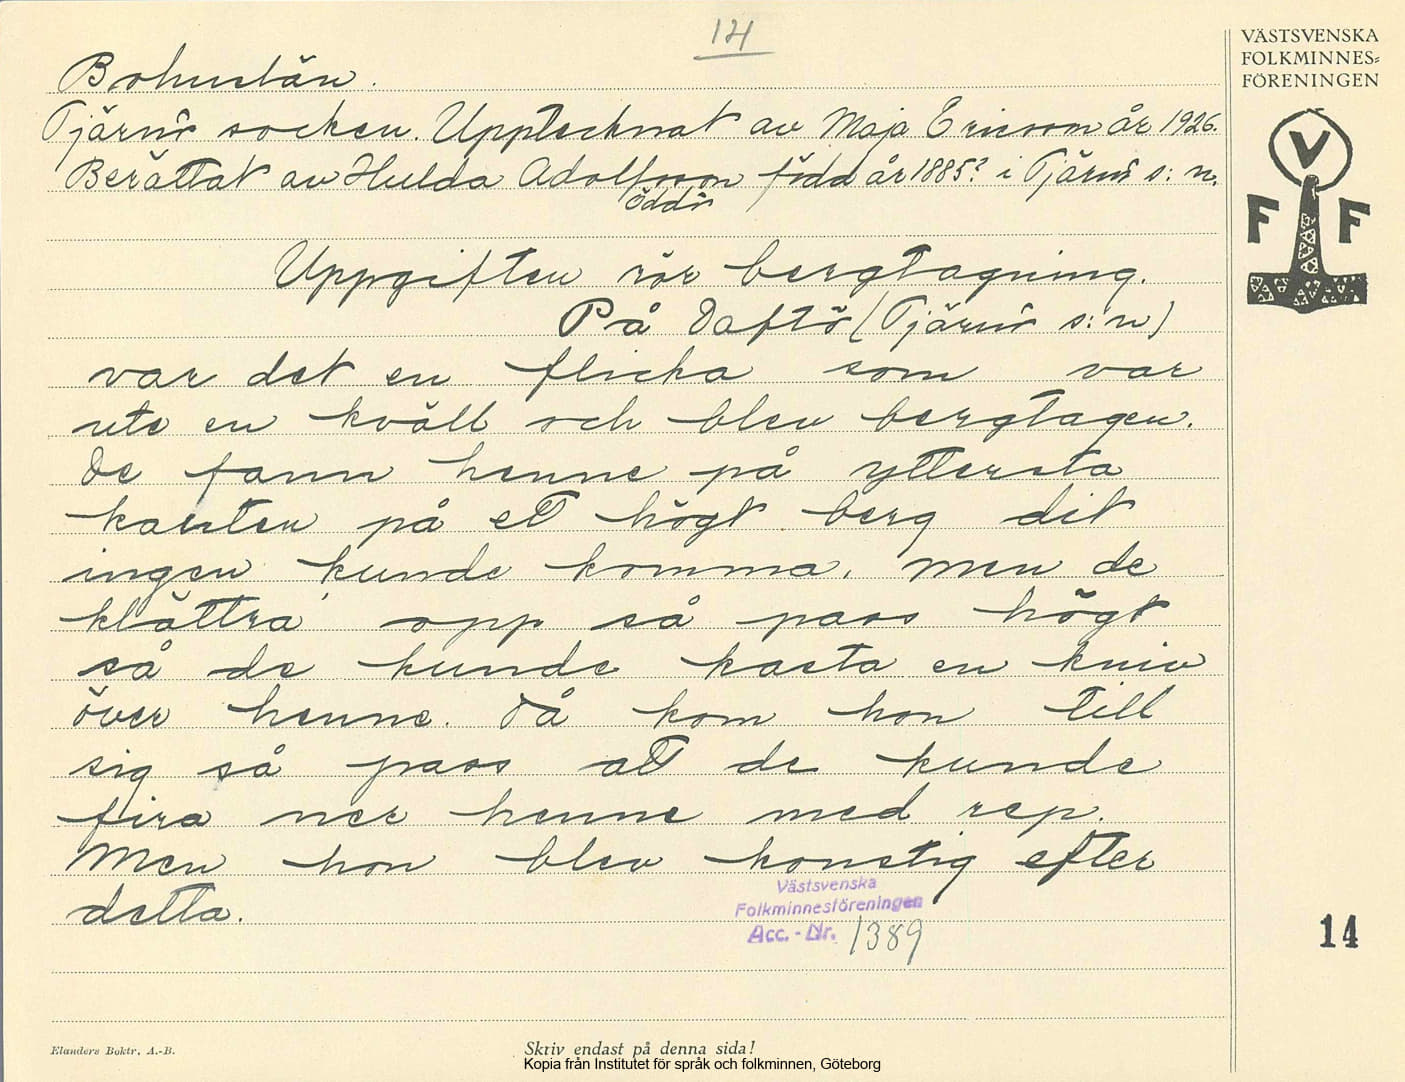 121
VÄSTSVENSKA
FOLKMINNES=
FÖRENINGEN
V
F F
Bohuslän.
Tjärnö socken. Upptecknat av Maja Ericson år 1926.
Berättat av Hulda Adolfsson född år 1885? i Tjärnö s:n.
Öddö
Uppgiften rör bergtagning.
På Daftö (Tjärnö s:n)
var det en flicka som var
ute en kväll och blev bergtagen.
De fann henne på yttersta
kanten på ett högt berg dit
ingen kunde komma, men de
klättra opp så pass högt
så de kunde kasta en kniv
över henne. Då kom hon till
sig så pass att de kunde
fira ner henne med rep.
Men hon blev konstig efter
detta.
Västsvenska
Folkminnesföreningen
Acc. - Nr. 1389
14
Elanders Boktr. A.-B.
Skriv endast på denna sida!
Kopia från Institutet för språk och folkminnen, Göteborg